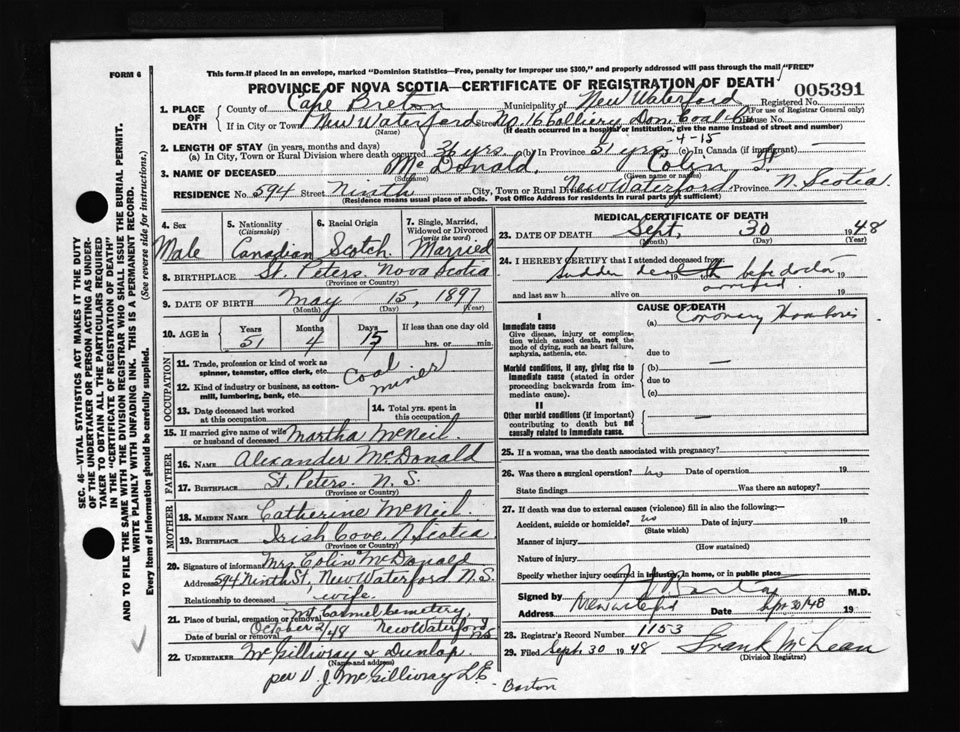 This form if placed in an envelope, marked "Dominion Statistics—Free, penalty for improper use $300," and properly addressed will pass through the mail "FREE"
FORM 6
PROVINCE OF NOVA SCOTIA—CERTIFICATE OF REGISTRATION OF DEATH
005391
SEC. 46—VITAL STATISTICS ACT MAKES IT THE DUTY
OF THE UNDERTAKER OR PERSON ACTING AS UNDER-
TAKER TO OBTAIN ALL THE PARTICULARS REQUIRED
IN THE "CERTIFICATE OF REGISTRATION OF DEATH"
AND TO FILE THE SAME WITH THE DIVISION REGISTRAR WHO SHALL ISSUE THE BURIAL PERMIT.
WRITE PLAINLY WITH UNFADING INK. THIS IS A PERMANENT RECORD.
Every item of information should be carefully supplied. (See reverse side for instructions.)
1. PLACE OF DEATH
County of Cape Breton Municipality of New Waterford Registered No.
(For use of Registrar General only)
If in City or Town New Waterford Street No. 16 Colliery Dom. Coal Co House No.
(Name) (If death occurred in a hospital or institution, give the name instead of street and number)
2. LENGTH OF STAY (in years, months and days)
(a) In City, Town or Rural Division where death occurred 36 yrs. (b) In Province 51 yrs -4-15 (c) In Canada (if immigrant) —
3. NAME OF DECEASED McDonald, Colin
(Surname) (Given name or names)
RESIDENCE No. 594 Street Ninth City, Town or Rural Division New Waterford Province N. Scotia
(Residence means usual place of abode. Post Office Address for residents in rural parts not sufficient)
4. Sex Male
5. Nationality (Citizenship) Canadian
6. Racial Origin Scotch
7. Single, Married, Widowed or Divorced (write the word) Married
8. BIRTHPLACE St. Peters Nova Scotia
(Province or Country)
9. DATE OF BIRTH May 15, 1897
(Month) (Day) (Year)
10. AGE in Years Months Days If less than one day old
51 4 15 hrs. or min.
OCCUPATION
11. Trade, profession or kind of work as spinner, teamster, office clerk, etc. Coal
12. Kind of industry or business, as cotton-mill, lumbering, bank, etc. miner
13. Date deceased last worked at this occupation
14. Total yrs. spent in this occupation
15. If married give name of wife or husband of deceased Martha McNeil
FATHER
16. NAME Alexander McDonald
17. BIRTHPLACE St. Peters N. S.
(Province or Country)
MOTHER
18. MAIDEN NAME Catherine McNeil
19. BIRTHPLACE Irish Cove, N Scotia
(Province or Country)
20. Signature of informant Mrs Colin McDonald
Address 594 Ninth St, New Waterford N.S.
Relationship to deceased wife.
21. Place of burial, cremation or removal Mt Carmel Cemetery,
Date of burial or removal October 2/48 New Waterford NS
22. UNDERTAKER McGillivray & Dunlap
(Name and address)
per J. McGillivray L.E.
Barton
MEDICAL CERTIFICATE OF DEATH
23. DATE OF DEATH Sept, 30 1948
(Month) (Day) (Year)
24. I HEREBY CERTIFY that I attended deceased from
Sudden death 19 to before doctor 19
and last saw h alive on arrived. 19
CAUSE OF DEATH
I
Immediate cause
Give disease, injury or complication which caused death, not the mode of dying, such as heart failure, asphyxia, asthenia, etc.
(a) Coronary Thrombosis
due to
Morbid conditions, if any, giving rise to immediate cause (stated in order proceeding backwards from immediate cause)
(b) —
due to
(c)
II
Other morbid conditions (if important) contributing to death but not causally related to immediate cause. —
25. If a woman, was the death associated with pregnancy?
26. Was there a surgical operation? no Date of operation 19
State findings Was there an autopsy?
27. If death was due to external causes (violence) fill in also the following:—
Accident, suicide or homicide? no Date of injury 19
(State which)
Manner of injury
(How sustained)
Nature of injury
Specify whether injury occurred in industry, in home, or in public place
Signed by M.D.
Address New Waterford Date Sept 30/48 19
28. Registrar's Record Number 1153
29. Filed Sept 30 1948 Frank McLean
(Division Registrar)